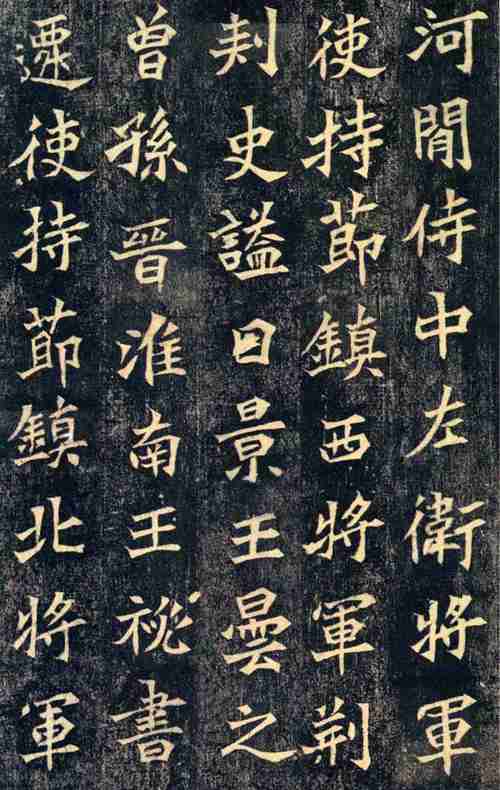 河間侍中左衛將軍
使持節鎮西將軍荊
刾史謚曰景王曇之
曾孫晉淮南王祕書
遷使持節鎮北將軍